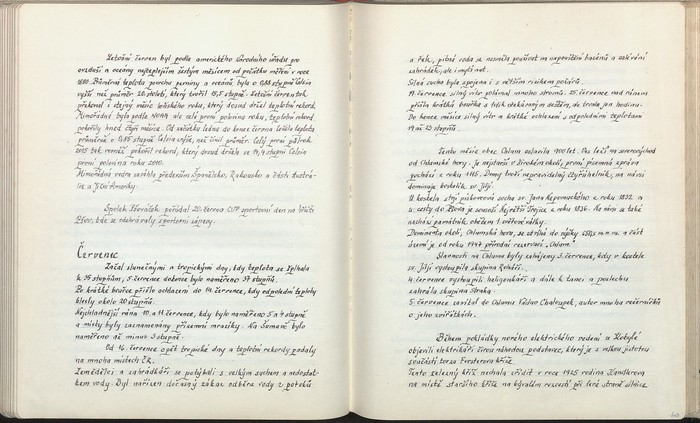 Letošní červen byl podle amerického Národního úřadu pro
oceány a nejteplejším šestým měsícem od počátku měření v roce
1880. Průměrná teplota povrchu pevniny a oceánů byla o 0,88 stupně Celsia
vyšší, než průměr 20. století, který tvořil 15,5 stupně. Letošní červen tak
překonal i stejný měsíc loňského roku, který dosud držel teplotní rekord.
Mimořádné bylo podle NOAA ale celé první polovina roku, teplotní rekord
pokořily hned čtyři měsíce. Od začátku ledna do konce června leželo teplota
průměrně o 0,85 stupně Celsia výše, než činil průměr. Celý první půlrok
2015 tak rovněž pokořil rekord, který dosud držela se 14,4 stupni Celsia
první polovina roku 2010.
Mimořádná vedra zasáhla především Španělsko, Rakousko a části Austrálie
a Jižní Ameriky.
Spolek Plováček pořádal 20. června sportovní den na hřišti
kde se odehrávaly sportovní zápasy.
Červenec
Začal slunečnými a tropickými dny, kdy teplota se šplhala
k 35 stupňům, 5. července dokonce bylo naměřeno 37 stupňů.
Po krátké bouřce přišlo ochlazení do 14. července, kdy odpolední teploty
klesly okolo 20 stupňů.
Nejchladnější rána 10. a 11. července, kdy bylo naměřeno 5 a 7 stupně
a místy byly zaznamenány přízemní mrazíky. Na Šumavě bylo
naměřeno až minus 3 stupně.
Od 16. července opět tropické dny a teplotní rekordy padaly
na mnoha místech ČR.
Zemědělci a zahrádkáři se potýkali s velkým suchem a nedostat-
kem vody. Byl nařízen dočasný zákaz odběru vody z potoků
a řek, pitná voda se nesměla používat na napouštění bazénů a zalévání
zahrádek, ale i mytí aut.
Silná sucha byla spojena i s větším rizikem požárů.
19. července silný vítr polámal mnoho stromů. 25. července nad ránem
přišla krátká bouřka s lidi čekávaným deštěm, ale trvala jen hodinu.
Do konce měsíce silný vítr a krátké ochlazení s odpoledními teplotami
19 až 23 stupňů.
Tento měsíc obec Chlum oslavila 900 let. Ves leží na severovýchod
od Chlumské hory. Je nejstarší v širokém okolí, první písemná zpráva
pochází z roku 1115. Domy tvoří nepravidelný čtyřúhelník, na návsi
dominuje kostelík sv. Jiljí.
U kostela stojí pískovcová socha sv. Jana Nepomuckého z roku 1832 a
u cesty do Plzně je sousoší Nejsvětější Trojice z roku 1836. Na návsi se také
nachází památník obětem 1. světové války.
Dominanta okolí, Chlumská hora, se zdvihá do výšky m n. m. a část
území je od roku 1947 přírodní rezervací "Chlum".
Slavnosti na Chlumu byly zahájeny 3. července, kdy v kostele
sv. Jiljí vystoupila skupina Roháči.
4. července vystoupili heligonkáři a dále k tanci a poslechu
zahrála skupina Straka.
5. července zavítal do Chlumu Václav Chaloupek, autor mnoha večerníčků
o jeho zvířátkách.
Během pokládky nového elektrického vedení u Kobylé
objevili elektrikáři čirou náhodou podstavec, který je s velkou jistotou
součástí torza Forsterova kříže.
Tento železný kříž nechala zřídit v roce 1925 rodina Handlerova
na místě staršího kříže na bývalém rozcestí při levé straně silnice